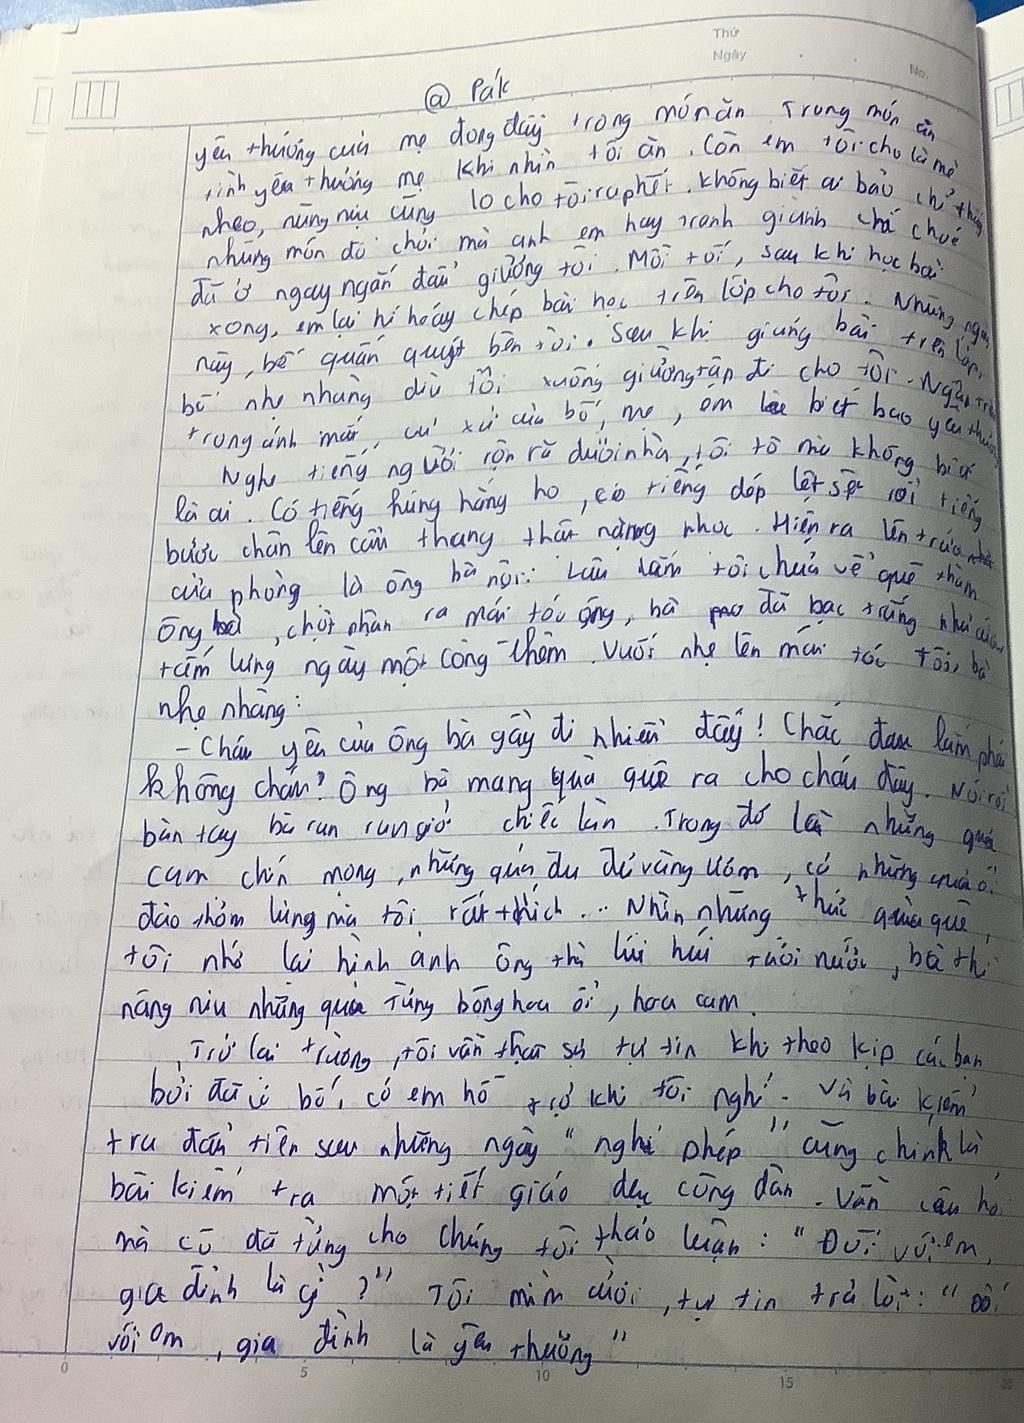 Thứ
Ngày
No.
@ Pák
yêu thương của mẹ đong đầy trong món ăn. Trong món ăn
tình yêu thương mẹ khi nhìn tôi ăn. Còn em tôi cho là mè
nheo, nũng nịu cũng lo cho tôi ra phết. Không biết ai bảo chỉ thấy
những món đồ chơi mà anh em hay tranh giành chí choé
đã ở ngay ngắn đầu giường tôi. Mỗi tối, sau khi học bài
xong, em lại hí hoáy chép bài học trên lớp cho tôi. Những ngày
này, bố quấn quýt bên tôi. Sau khi giảng bài trên lớp,
bố nhẹ nhàng dìu tôi xuống giường tập đi cho tôi. Ngập tràn
trong ánh mắt, cư xử của bố, mẹ, em là biết bao yêu thương
Nghe tiếng người rộn rã dưới nhà, tôi tò mò không biết
là ai. Có tiếng húng hắng ho, có tiếng dép lệt sệt rồi tiếng
bước chân lên cầu thang thật nặng nhọc. Hiện ra lên trước
cửa phòng là ông bà nội. Lâu lắm tôi chưa về quê thăm
Ông bà, chợt nhận ra mái tóc ông, bà đã bạc trắng như cước
tấm lưng ngày một còng thêm. Vuốt nhẹ lên mái tóc tôi, bà
nhẹ nhàng:
- Cháu yêu của ông bà gầy đi nhiều đấy! Chắc đau lắm phải
không cháu? Ông bà mang quà quê ra cho cháu đây. Nói rồi
bàn tay bà run run giở chiếc làn. Trong đó là những quả
cam chín mọng, những quả đu đủ vàng ươm, có những quả ổi
đào thơm lừng mà tôi rất thích... Nhìn những thức quà quê,
tôi nhớ lại hình ảnh ông thì lúi húi tưới nước, bà thì
nâng niu những quả từng bông hoa ổi, hoa cam.
Trở lại trường, tôi vẫn thật sự tự tin khi theo kịp các bạn
bởi đã có bố, có em hỗ trợ khi tôi nghỉ. Và bài kiểm
tra đầu tiên sau những ngày "nghỉ phép" cũng chính là
bài kiểm tra một tiết giáo dục công dân. Vẫn câu hỏi
mà cô đã từng cho chúng tôi thảo luận: "Đối với em,
gia đình là gì?" Tôi mỉm cười, tự tin trả lời: "Đối
với em, gia đình là yêu thương"
0 5 10 15 20